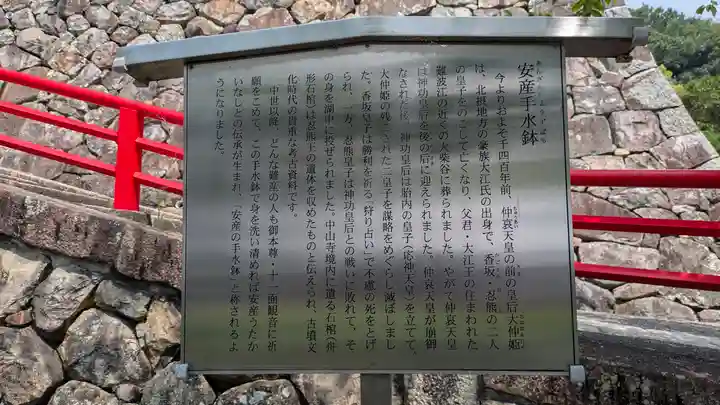 安産手水鉢
今よりおよそ千四百年前、仲哀天皇の前の皇后大仲姫
は、北摂地方の豪族大江氏の出身で、香坂・忍熊の二人
の皇子をのこして亡くなり、父君・大江王の住まわれた
難波江の近くの大柴谷に葬られました。やがて仲哀天皇
は神功皇后を後の后に迎えられました。仲哀天皇が崩御
なされた後、神功皇后は胎内の皇子(応神天皇)を立てて、
大仲姫の残された二皇子を謀略をめぐらし滅ぼしまし
た。香坂皇子は勝利を祈る「狩り占い」で不慮の死をとげ
られ、一方、忍熊皇子は神功皇后との戦いに敗れて、そ
の身を湖中に投ぜられました。中山寺境内に遺る石棺(舟
形石棺)は忍熊王の遺体を収めたものと伝えられ、古墳文
化時代の貴重な考古資料です。
中世以降、どんな難産の人も御本尊・十一面観音に祈
願をこめて、この手水鉢で身を洗い清めれば安産うたか
いなしとの伝承が生まれ、「安産の手水鉢」と称されるよ
うになりました。